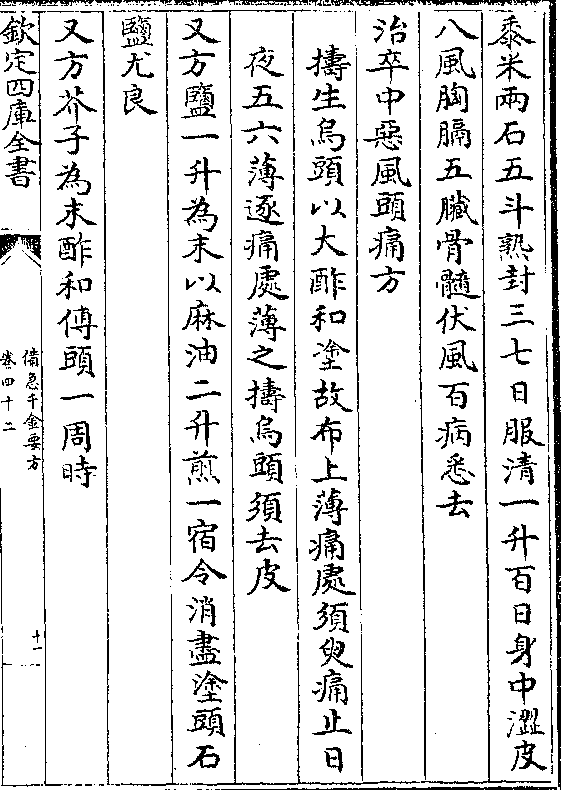 黍米兩石五斗熟封三七日服清一升百日身中澀皮
八風胸膈五臟骨髓伏風百病悉去
治卒中惡風頭痛方
擣生烏頭以大酢和塗故布上薄痛處須臾痛止日
夜五六薄逐痛處薄之擣烏頭須去皮
又方鹽一升為末以麻油二升煎一宿令消盡塗頭石
鹽尤良
又方芥子為末酢和傅頭一周時
欽定四庫全書
備急千金要方
卷四十二
十一